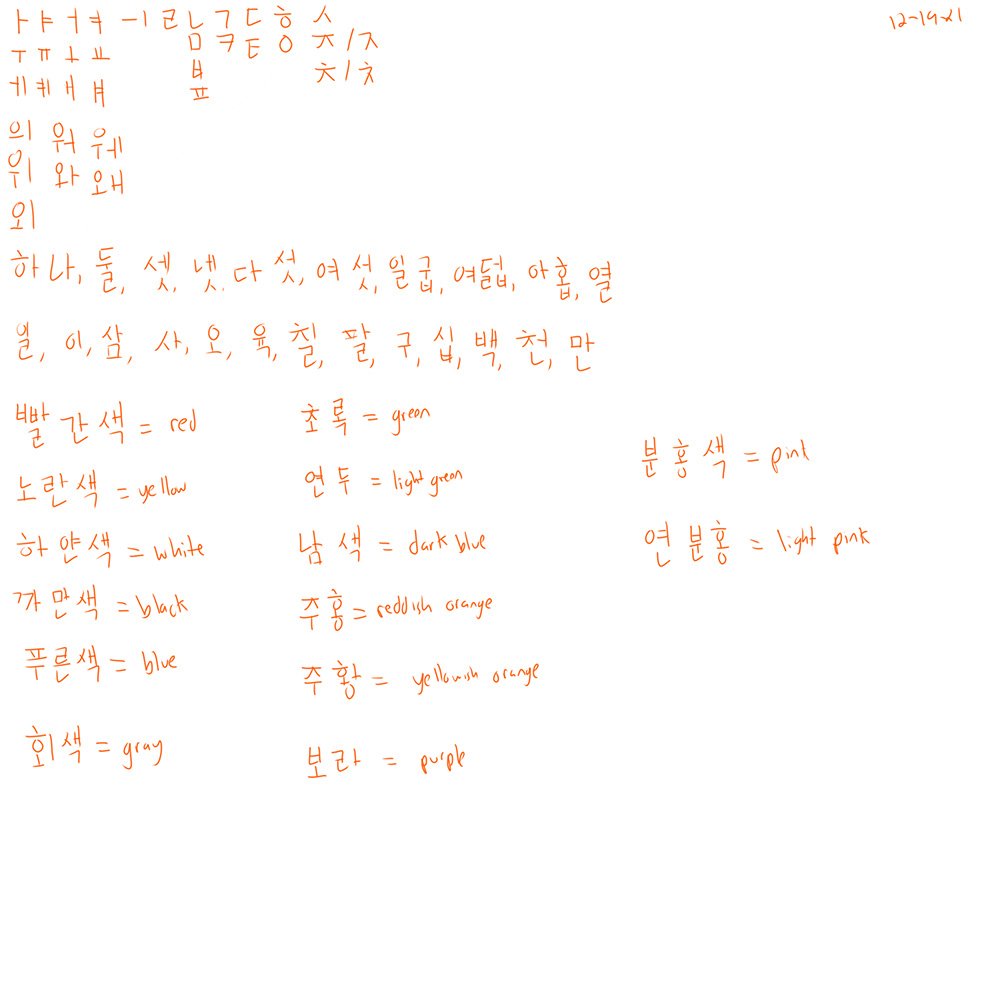 12-19-21
ㅏ ㅑ ㅓ ㅕ ㅡ ㅣ ㄹ ㄴ ㄱ ㄷ ㅎ ㅅ
ㅜ ㅠ ㅗ ㅛ ㅁ ㅋ ㅌ ㅇ ㅈ/ㅈ
ㅔ ㅖ ㅐ ㅒ ㅂ ㅊ/ㅊ
ㅍ
의 워 웨
위 와 왜
외
하나, 둘, 셋, 넷, 다섯, 여섯, 일굽, 여덟, 아홉, 열
일, 이, 삼, 사, 오, 육, 칠, 팔, 구, 십, 백, 천, 만
빨간색 = red
노란색 = yellow
하얀색 = white
까만색 = black
푸른색 = blue
회색 = gray
초록 = green
연두 = light green
남색 = dark blue
주홍 = reddish orange
주황 = yellowish orange
보라 = purple
분홍색 = pink
연분홍 = light pink